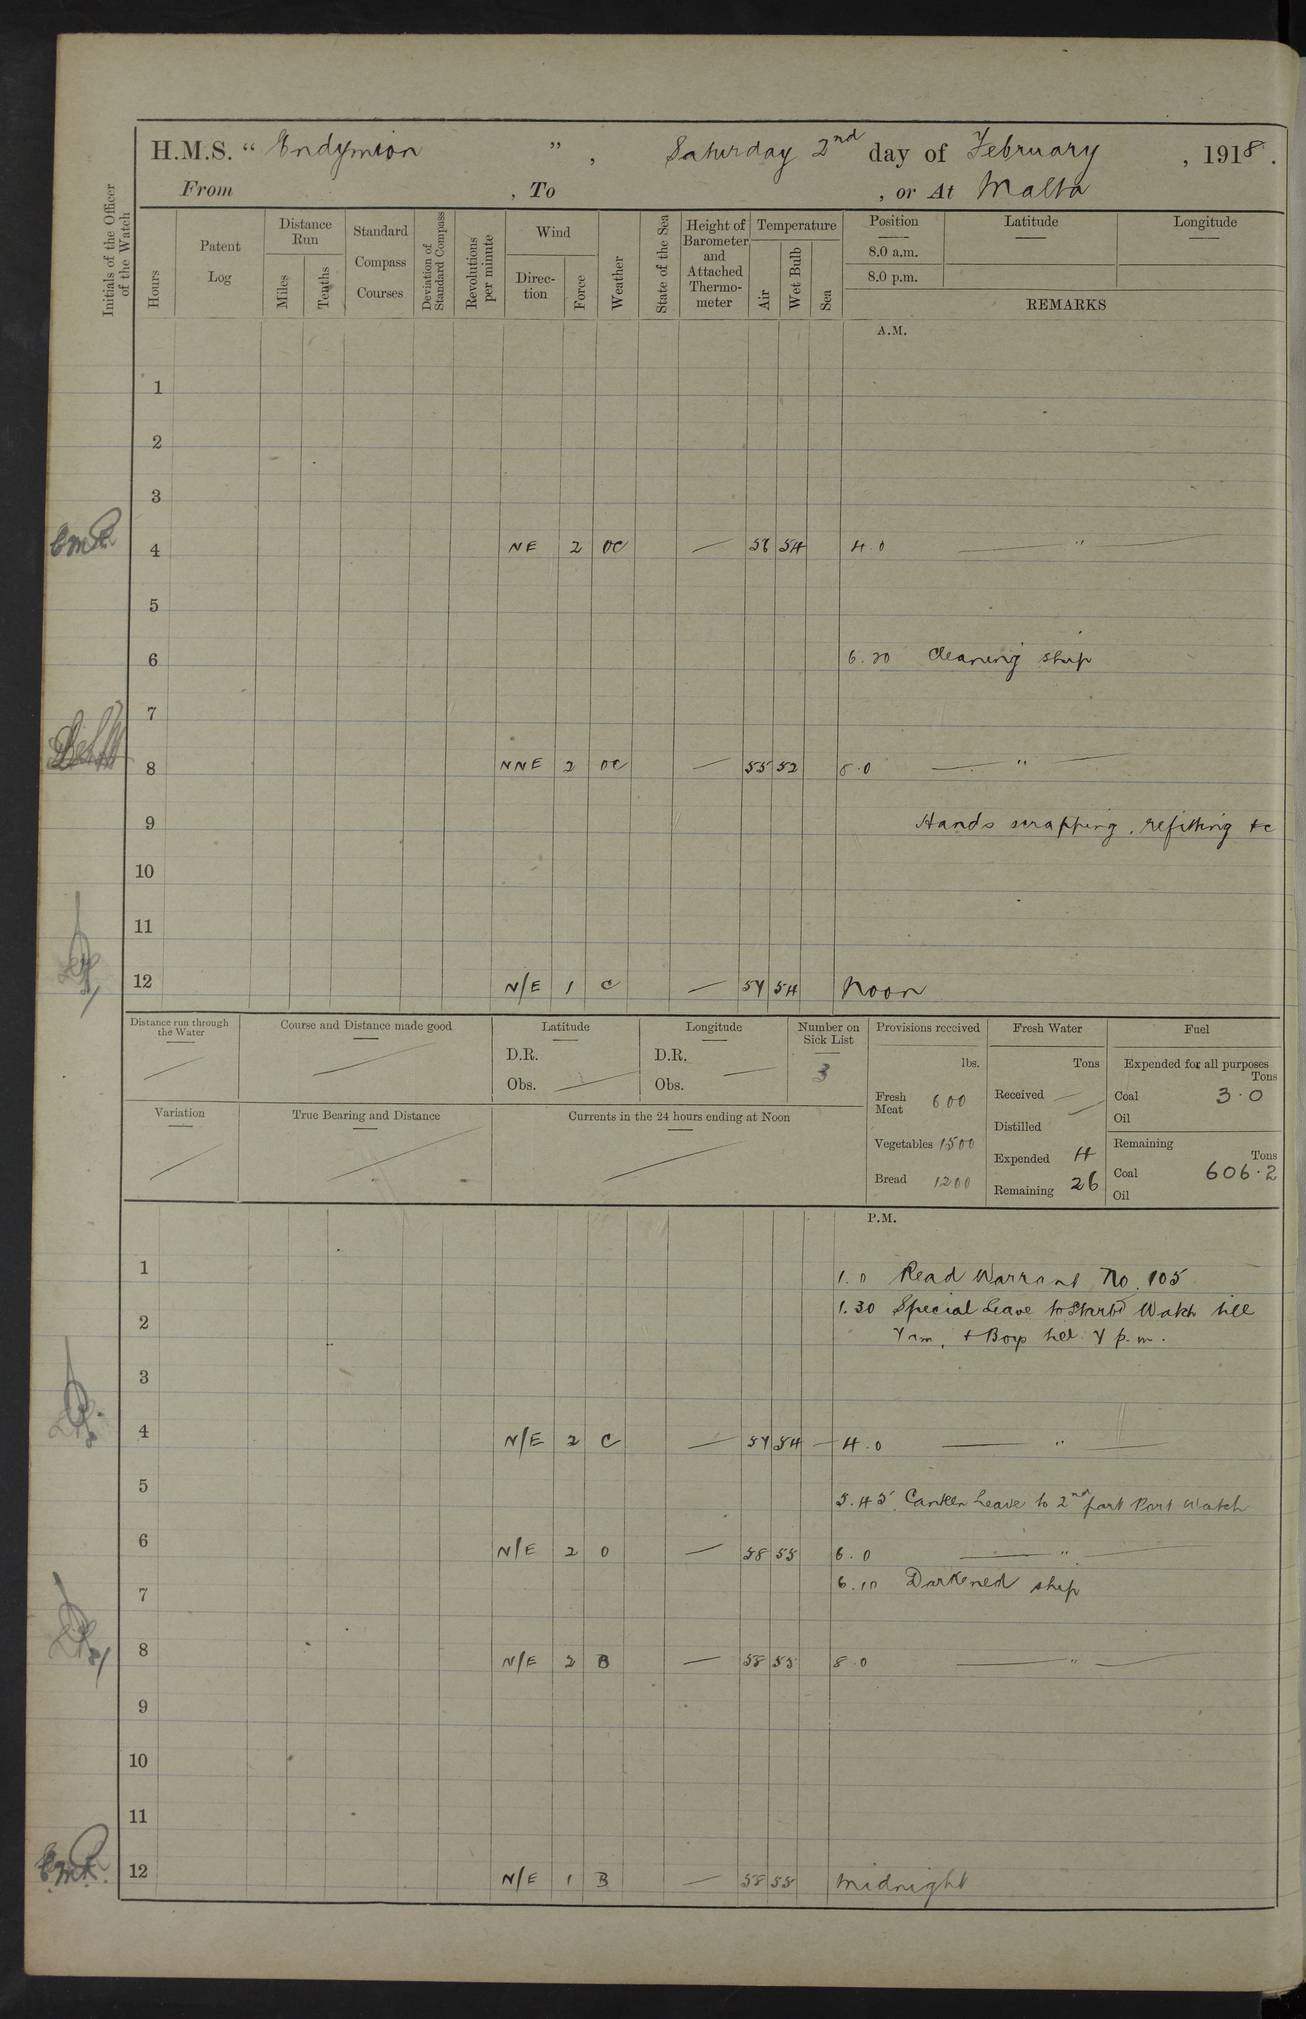 H.M.S. “ Endymion ” , Saturday 2nd day of February , 1918 .
From , To , or At Malta
Initials of the Officer of the Watch
Hours
Patent Log
Distance Run
Miles
Tenths
Standard Compass Courses
Deviation of Standard Compass
Revolutions per minute
Wind
Direc-tion
Force
Weather
State of the Sea
Height of Barometer and Attached Thermo-meter
Temperature
Air
Wet Bulb
Sea
Position
8.0 a.m.
8.0 p.m.
Latitude
Longitude
REMARKS
A.M.
1
2
3
4 NE 2 OC — 56 54 4.0 — " —
5
6 6.20 Cleaning ship
7
8 NNE 2 OC — 55 52 8.0 — " —
9 Hands scrapping, refitting &c
10
11
12 N/E 1 C — 57 54 Noon
Distance run through the Water
Course and Distance made good
Latitude
D.R.
Obs.
Longitude
D.R.
Obs.
Number on Sick List
3
Variation
True Bearing and Distance
Currents in the 24 hours ending at Noon
Provisions received
lbs.
Fresh Meat 600
Vegetables 1500
Bread 1200
Fresh Water
Tons
Received —
Distilled —
Expended 4
Remaining 26
Fuel
Expended for all purposes
Tons
Coal 3.0
Oil
Remaining
Tons
Coal 606.2
Oil
P.M.
1 1.0 Read Warrant No. 105
1.30 Special Leave to Starbd Watch till
2 7 am, + Boys till 7 p.m.
3
4 N/E 2 C — 57 54 — 4.0 — " —
5 5.45 Canteen Leave to 2nd part Port Watch
6 N/E 2 O — 58 55 6.0 — " —
7 6.10 Darkened ship
8 N/E 2 B — 58 55 8.0 — " —
9
10
11
12 N/E 1 B — 58 55 Midnight